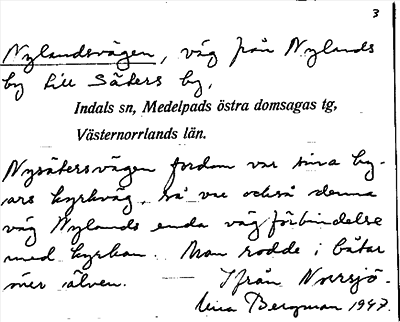 3
Nylandsvägen, väg från Nylands
by till Säters by,
Indals sn, Medelpads östra domsagas tg,
Västernorrlands län.
Nysätersvägen fordom var sina by-
ars kyrkväg, så var också denna
väg Nylands enda vägförbindelse
med kyrkan. Man rodde i båtar
över älven. Ifrån Norrsjö.
Bergman 1947.